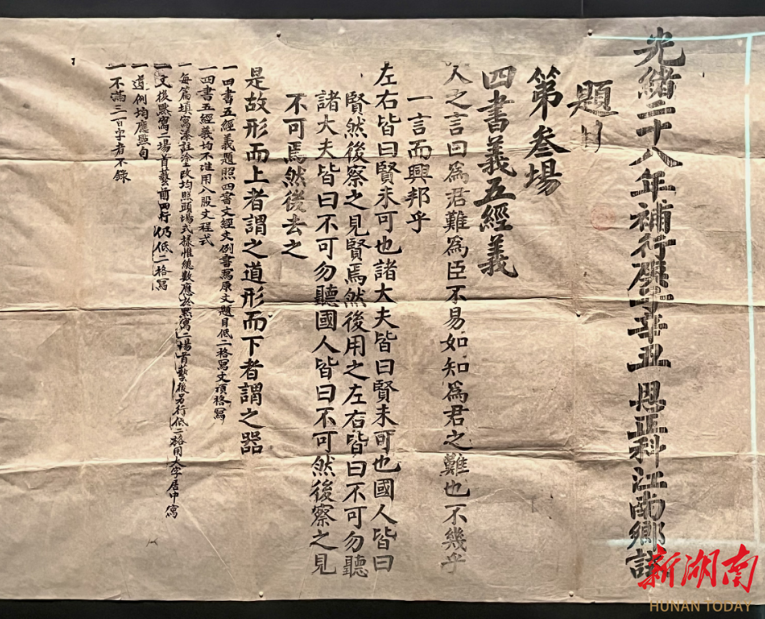 光緒二十八年補行庚子辛丑恩正科江南鄉試
題目
第叁場
四書義五經義
人之言曰爲君難爲臣不易如知爲君之難也不幾乎
一言而興邦乎
左右皆曰賢未可也諸大夫皆曰賢未可也國人皆曰
賢然後察之見賢焉然後用之左右皆曰不可勿聽
諸大夫皆曰不可勿聽國人皆曰不可然後察之見
不可焉然後去之
是故形而上者謂之道形而下者謂之器
一四書五經義題照四書文經文例書寫原文題目低二格寫文頂格寫
一四書五經義均不准用八股文程式
一每篇填寫添註塗改均照頭場式樣惟總數應於默寫二場首藝後另行低二格用大字居中寫
一文後默寫二場首藝前四行仍低二格寫
一遵例均應點句
一不滿三百字者不錄
新湖南
HUNAN TODAY